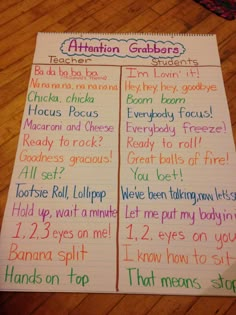 Attention Grabbers
Teacher Students
Ba da ba ba ba I'm lovin' it!
Na na na na, na na na na Hey, hey, hey, goodbye
Chicka, chicka Boom boom
Hocus Pocus Everybody focus!
Macaroni and Cheese Everybody freeze!
Ready to rock? Ready to roll!
Goodness gracious! Great balls of fire!
All set? You bet!
Tootsie Roll, Lollipop We've been talking, now let's
Hold up, wait a minute Let me put my body in
1, 2, 3 eyes on me! 1, 2, eyes on you
Banana split I know how to sit
Hands on top That means stop